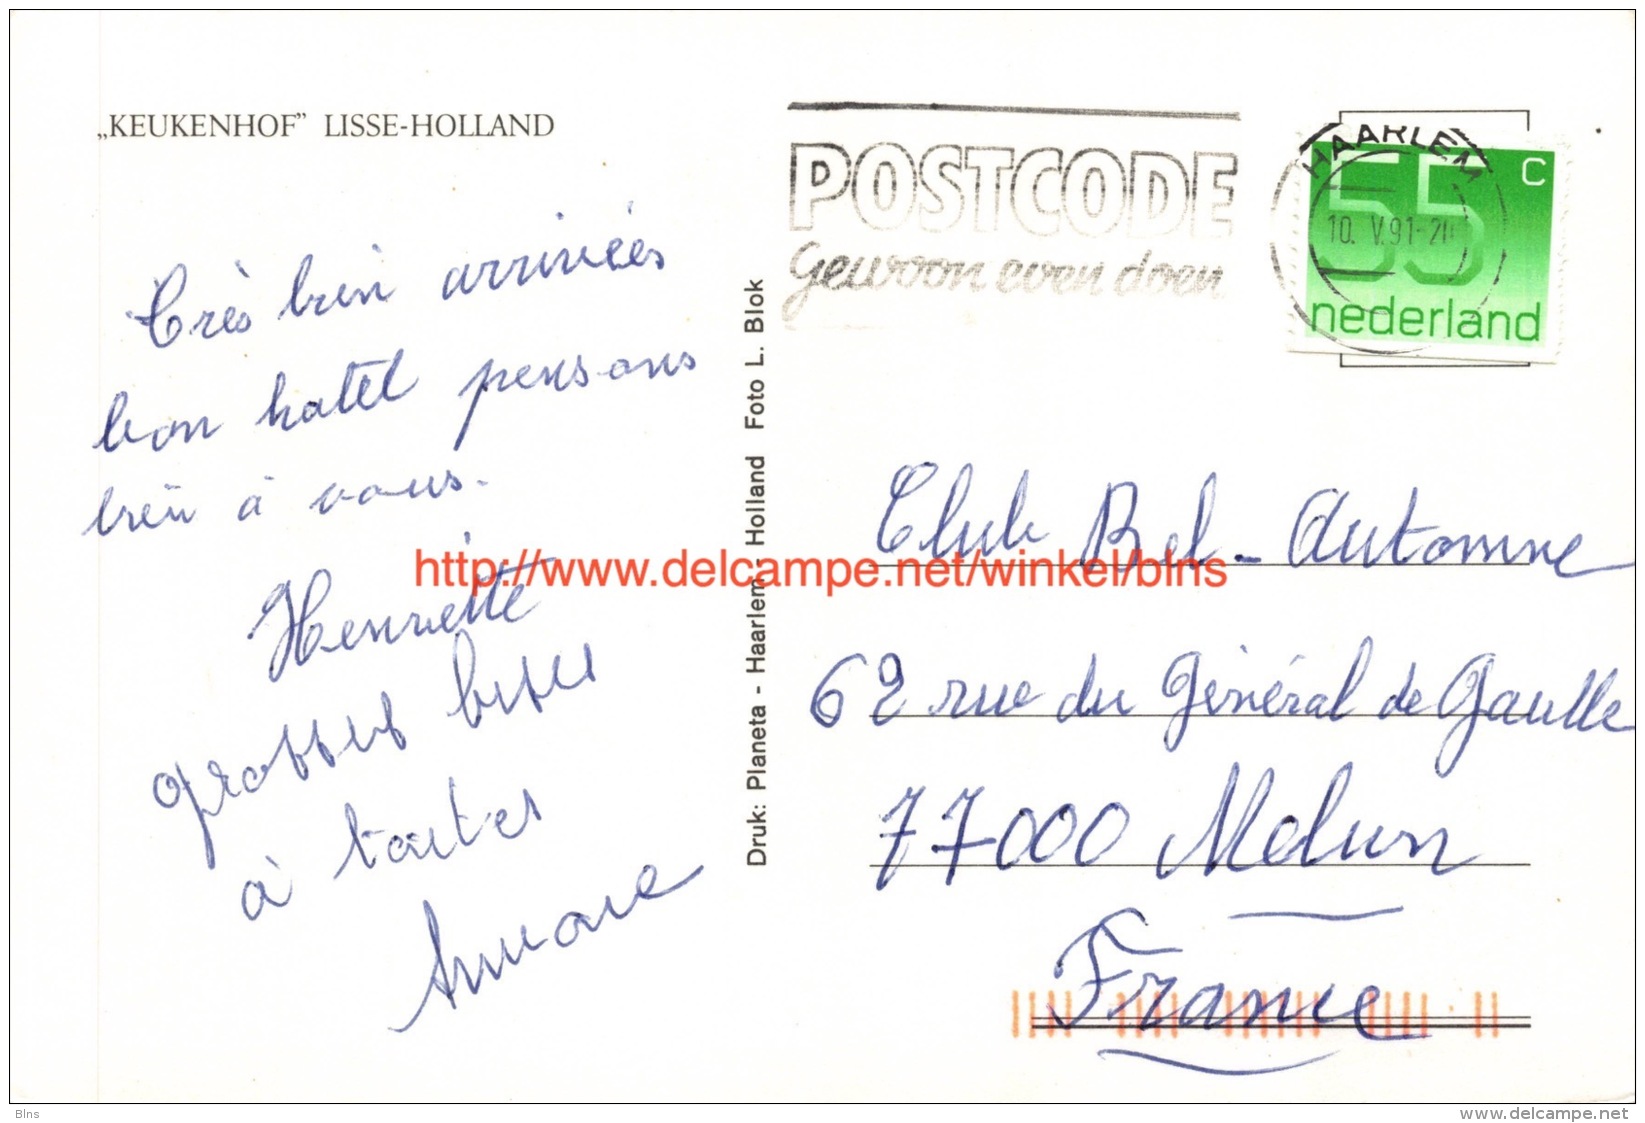 „KEUKENHOF” LISSE-HOLLAND
POSTCODE
Gewoon even doen
HAARLEM
10. V.91-20
55 C
nederland
Très bien arrivées
bon hotel pensons
bien à vous.
Henriette
grosses bises
à toutes
Druk: Planeta - Haarlem - Holland Foto L. Blok
Club Bel-Automne
62 rue du Général de Gaulle
77000 Melun
France
http://www.delcampe.net/winkel/blns
Blns
www.delcampe.net